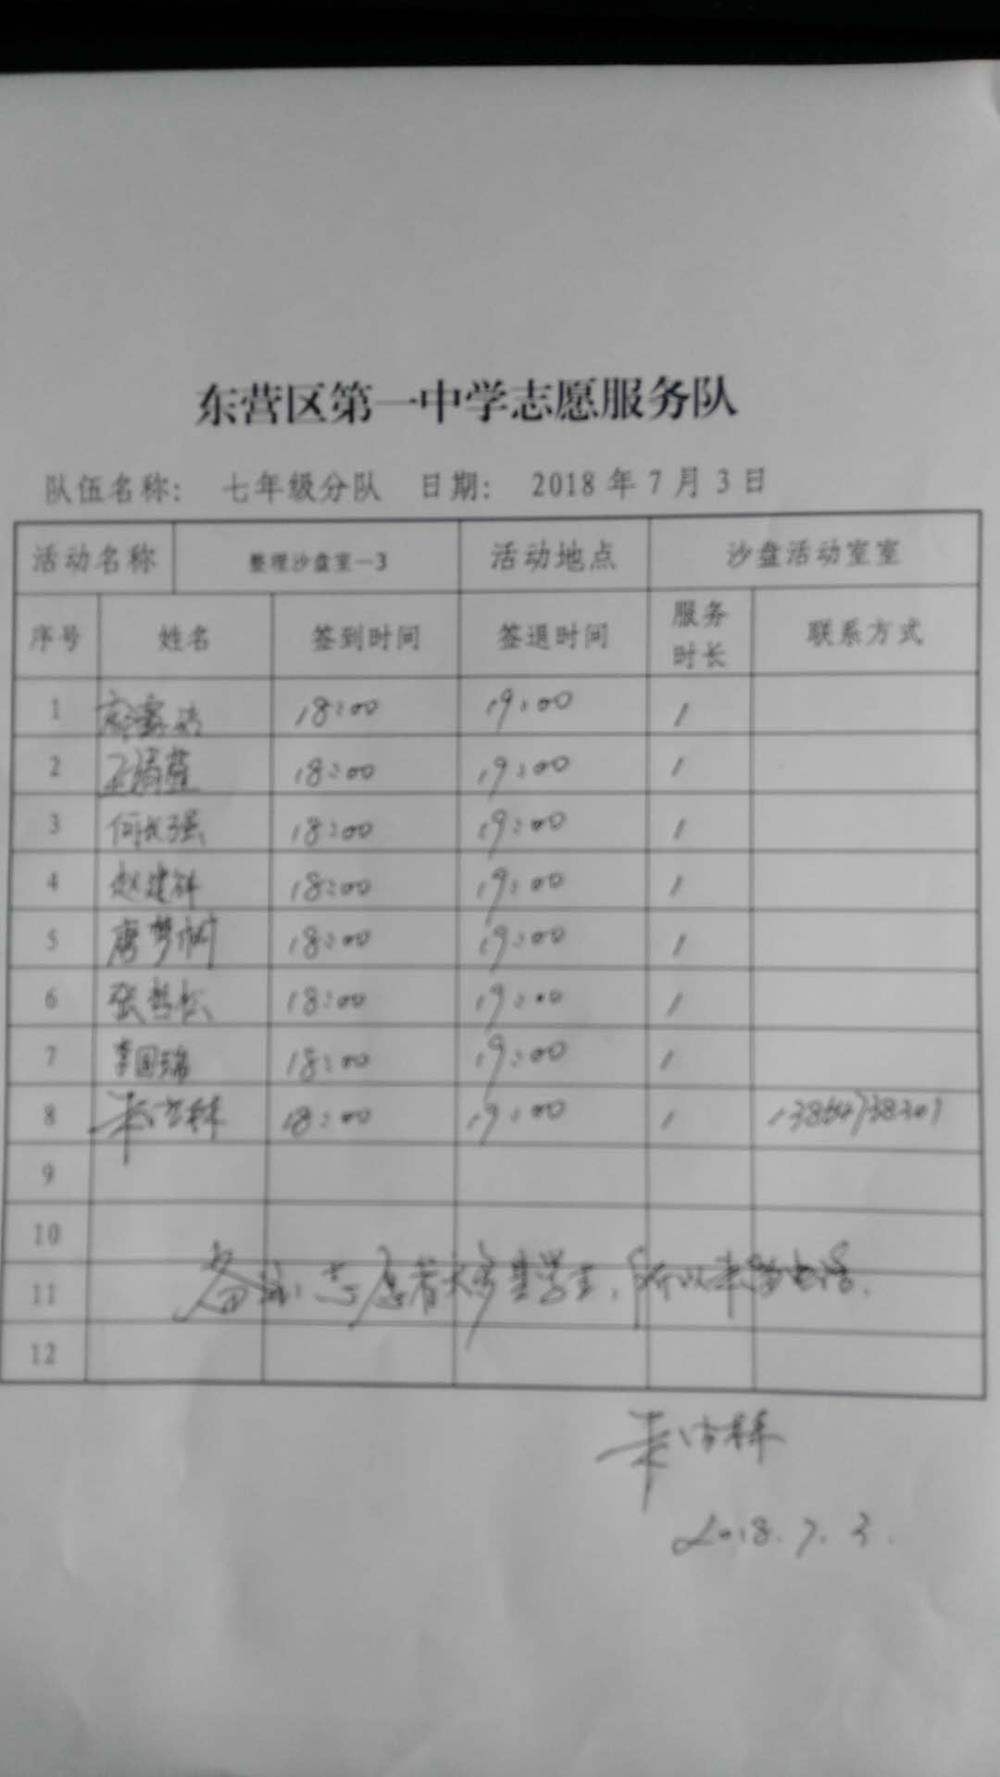 东营区第一中学志愿服务队
队伍名称： 七年级分队 日期： 2018年7月3日
活动名称 整理沙盘室-3 活动地点 沙盘活动室室
序号 姓名 签到时间 签退时间 服务时长 联系方式
1 18:00 19:00 1
2 18:00 19:00 1
3 何长强 18:00 19:00 1
4 赵建祥 18:00 19:00 1
5 唐梦树 18:00 19:00 1
6 张哲松 18:00 19:00 1
7 李国瑞 18:00 19:00 1
8 18:00 19:00 1
9
10
11 备注：志愿者大多是学生，所以未留电话.
12
2018.7.3.